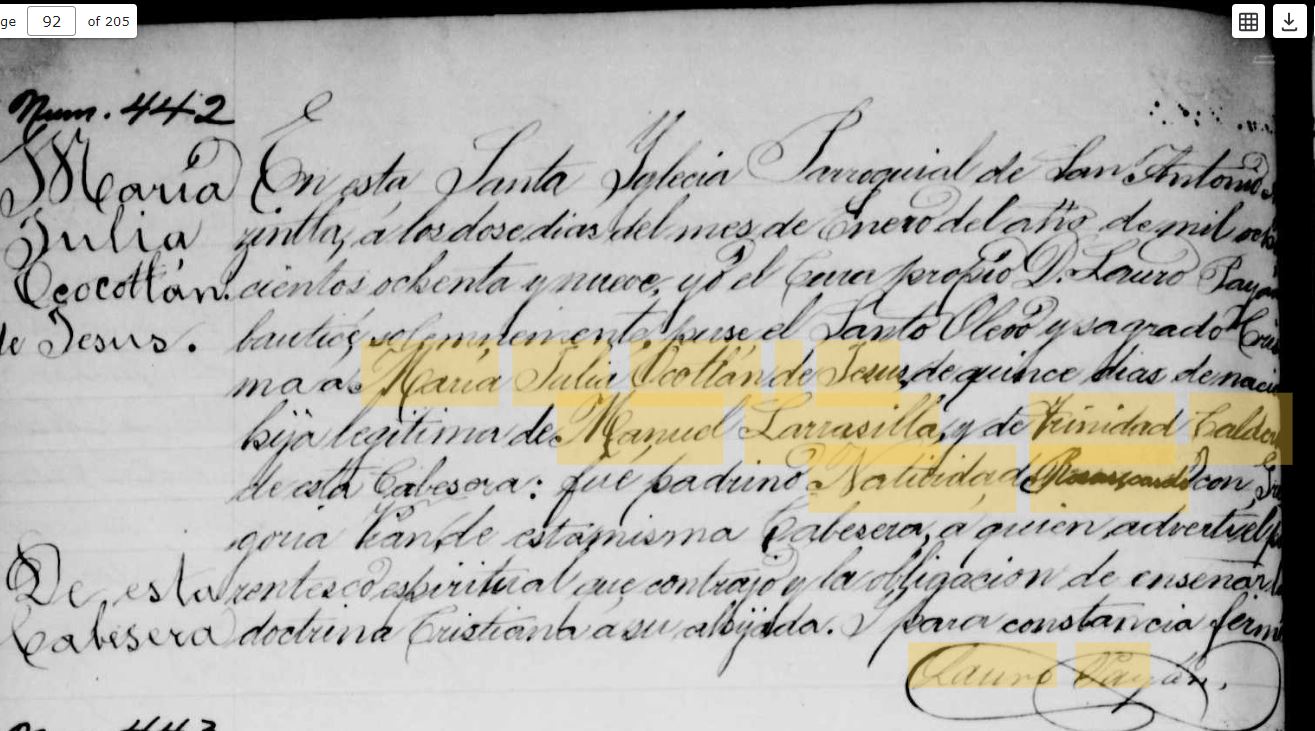 ge 92 of 205
Num. 442
María
Julia
Ococotlán
de Jesus.
En esta Santa Yglecia Parroquial de San Antonio
zintla, á los dose dias del mes de Enero del año de mil ocho
cientos ochenta y nueve, yó el Cura propio D. Lauro Payan
bauticé solemnemente, puse el Santo Oleo y sagrado Cris
ma a María Julia Ocotlán de Jesus, de quince dias de naci
hija legitima de Manuel Larrasilla, y de Trinidad Calder
de esta Cabesera: fué padrino Natividad con Gre
goria de esta misma Cabesera, á quien advertí el pa
rentesco espiritual que contrajo y la obligacion de enseñar l
doctrina Cristiana á su ahijada. Y para constancia firm
De esta
Cabesera
Lauro Payán.
Num. 443